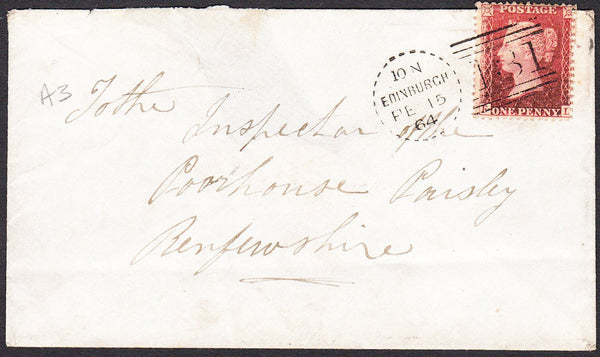 POSTAGE
131
ONE PENNY L
10 N
EDINBURGH
FE 15
64
A3
To the
Inspector of the
Poorhouse Paisley
Renfewshire